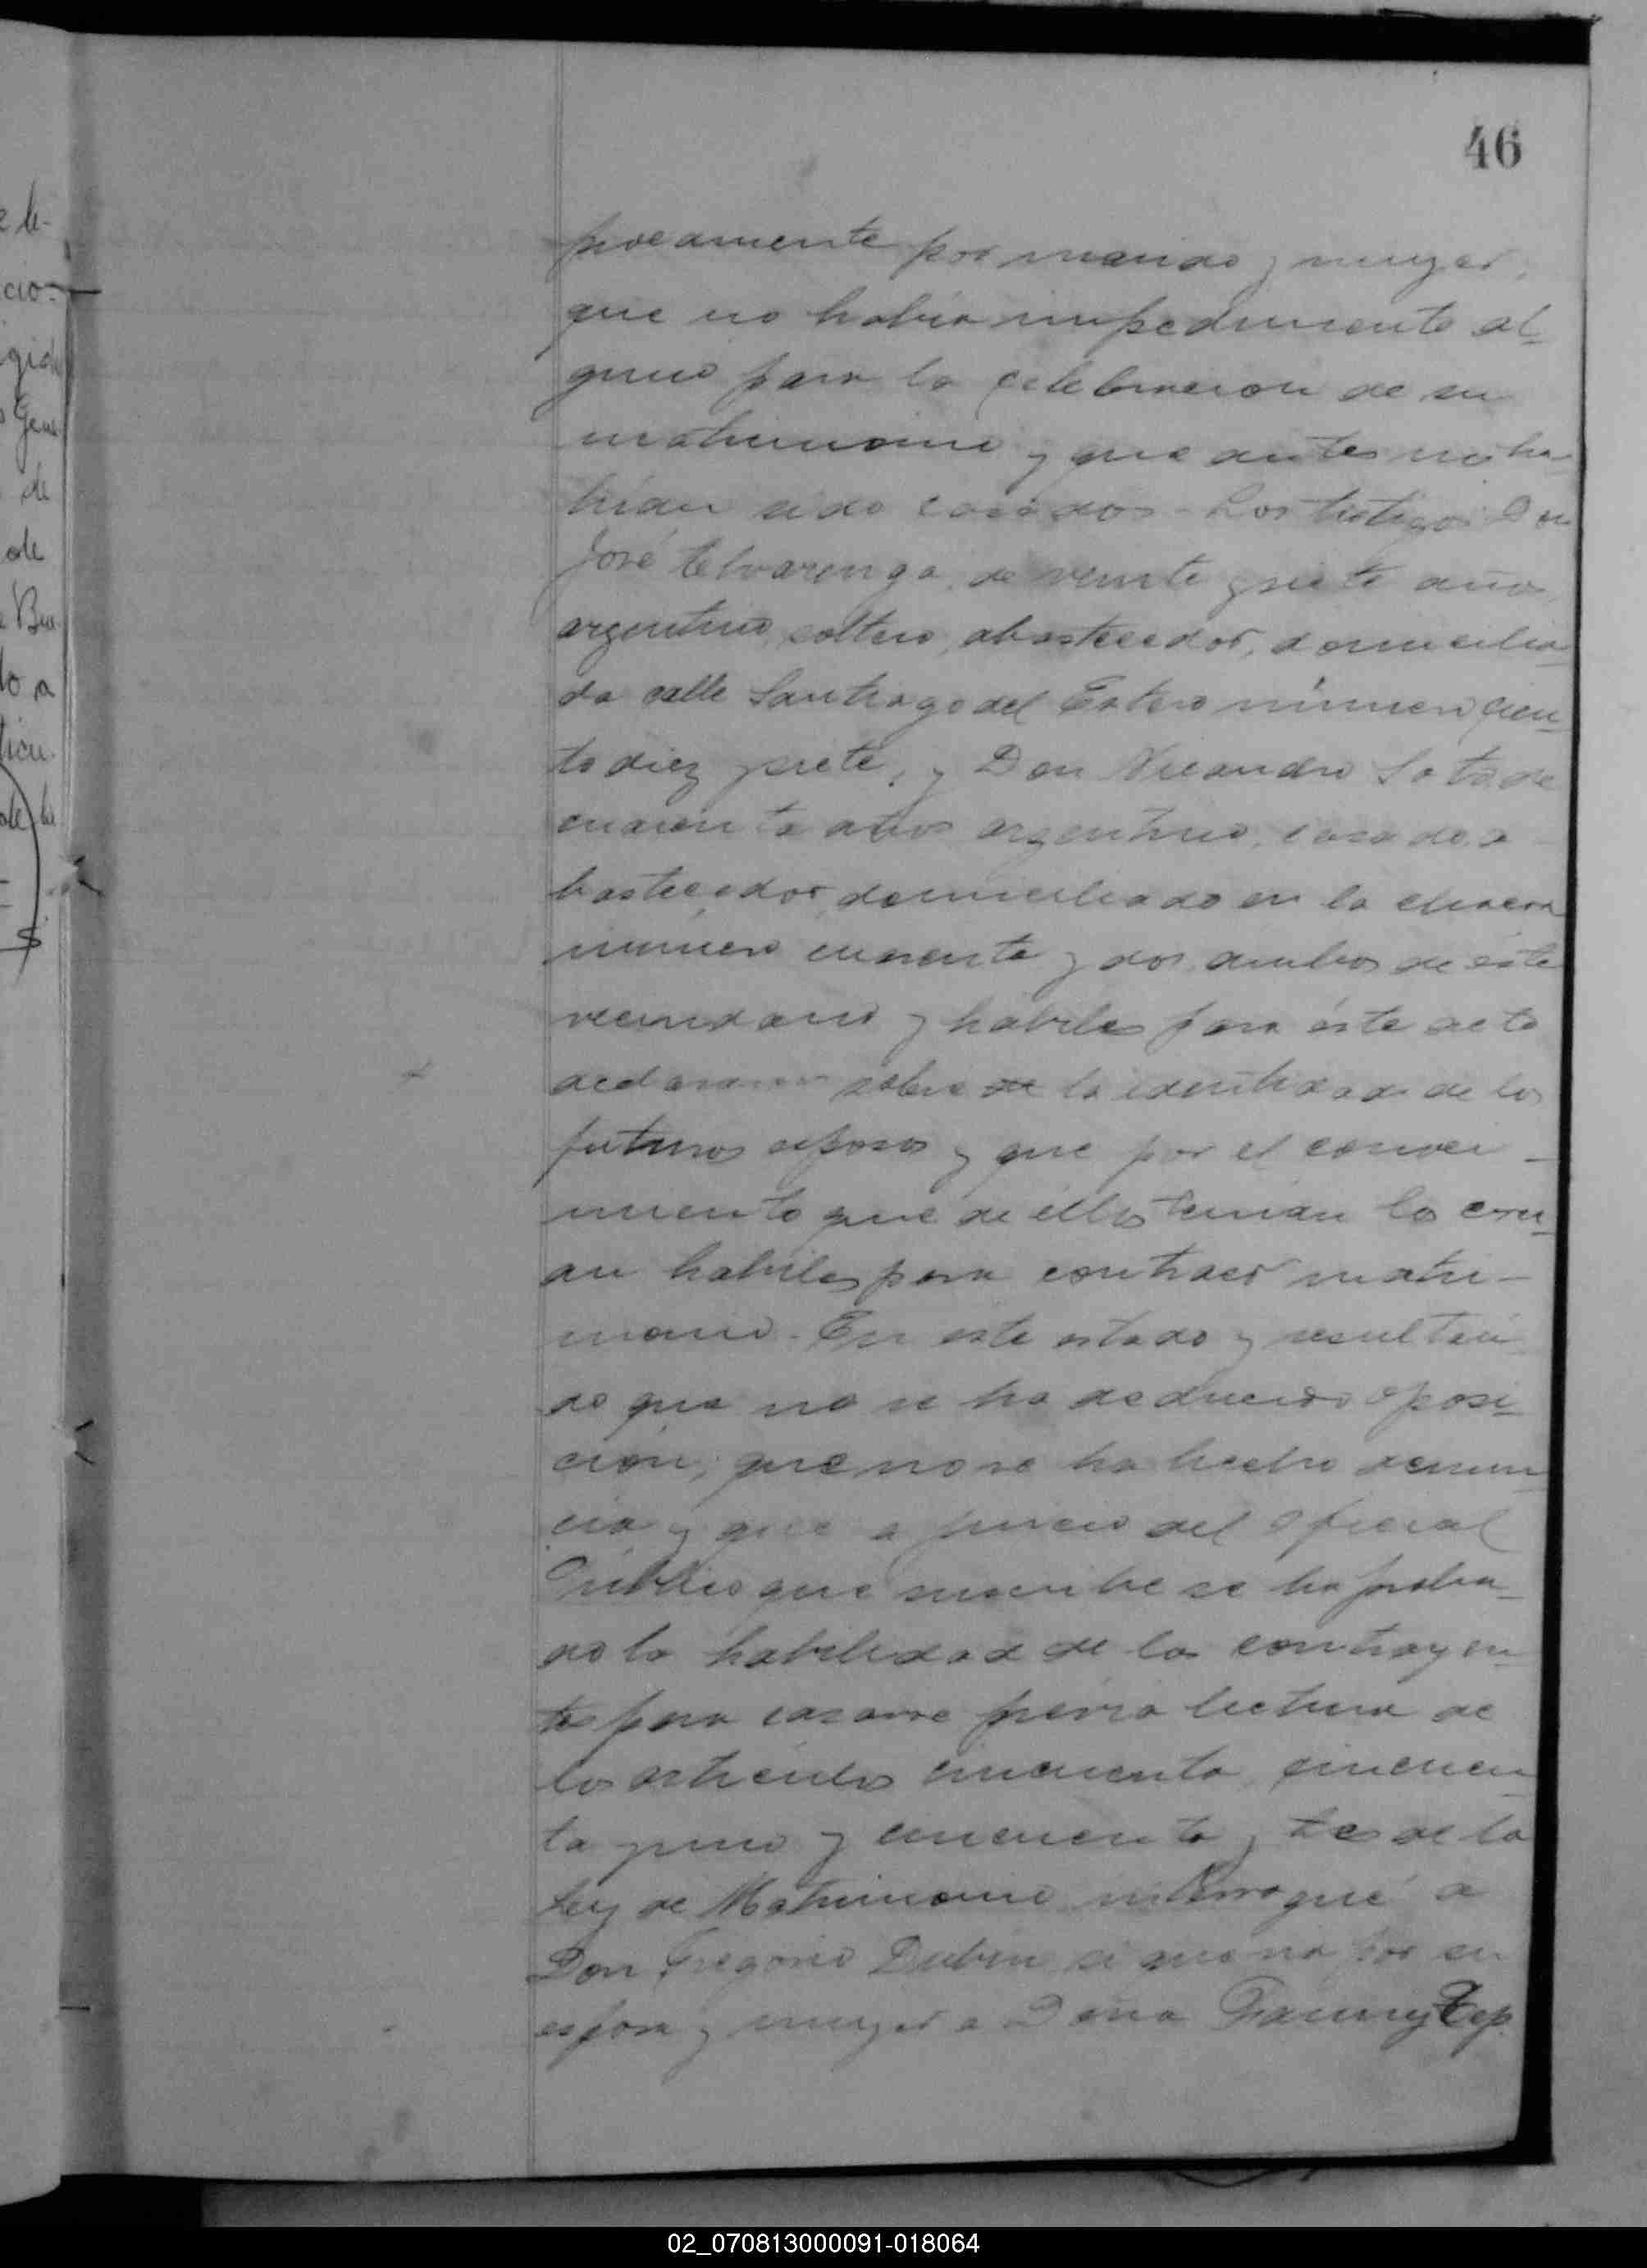 46
procamente por marido y muger,
que no habia impedimento al-
guno para la celebracion de su
matrimonio y que antes no ha-
bian sido casados - Los testigos Don
José Alvarenga, de veinte y siete años
argentino, soltero, abastecedor, domicilia-
do calle Santiago del Estero número cien-
to diez y siete, y Don Nicandro Soto, de
cuarenta años argentino, casado, a-
bastecedor, domiciliado en la chacra
número cuarenta y dos, ambos de este
vecindario y habiles para éste acto
declararon sobre la identidad de los
futuros esposos y que por el conoci-
miento que de ellos tenian los cre-
an habiles para contraer matri-
monio. En este estado y resultan-
do que no se ha deducido oposi-
cion, que no se ha hecho denun-
cia y que a juicio del Oficial
Público que suscribe se ha proba-
do la habilidad de los contrayen-
tes para casarse previa lectura de
los articulos cincuenta, cincuen-
ta y uno y cincuenta y tres de la
Ley de Matrimonio interrogué a
Don Gregorio Dubin si queria por su
esposa y muger a Doña Fanny Tep
02_070813000091-018064